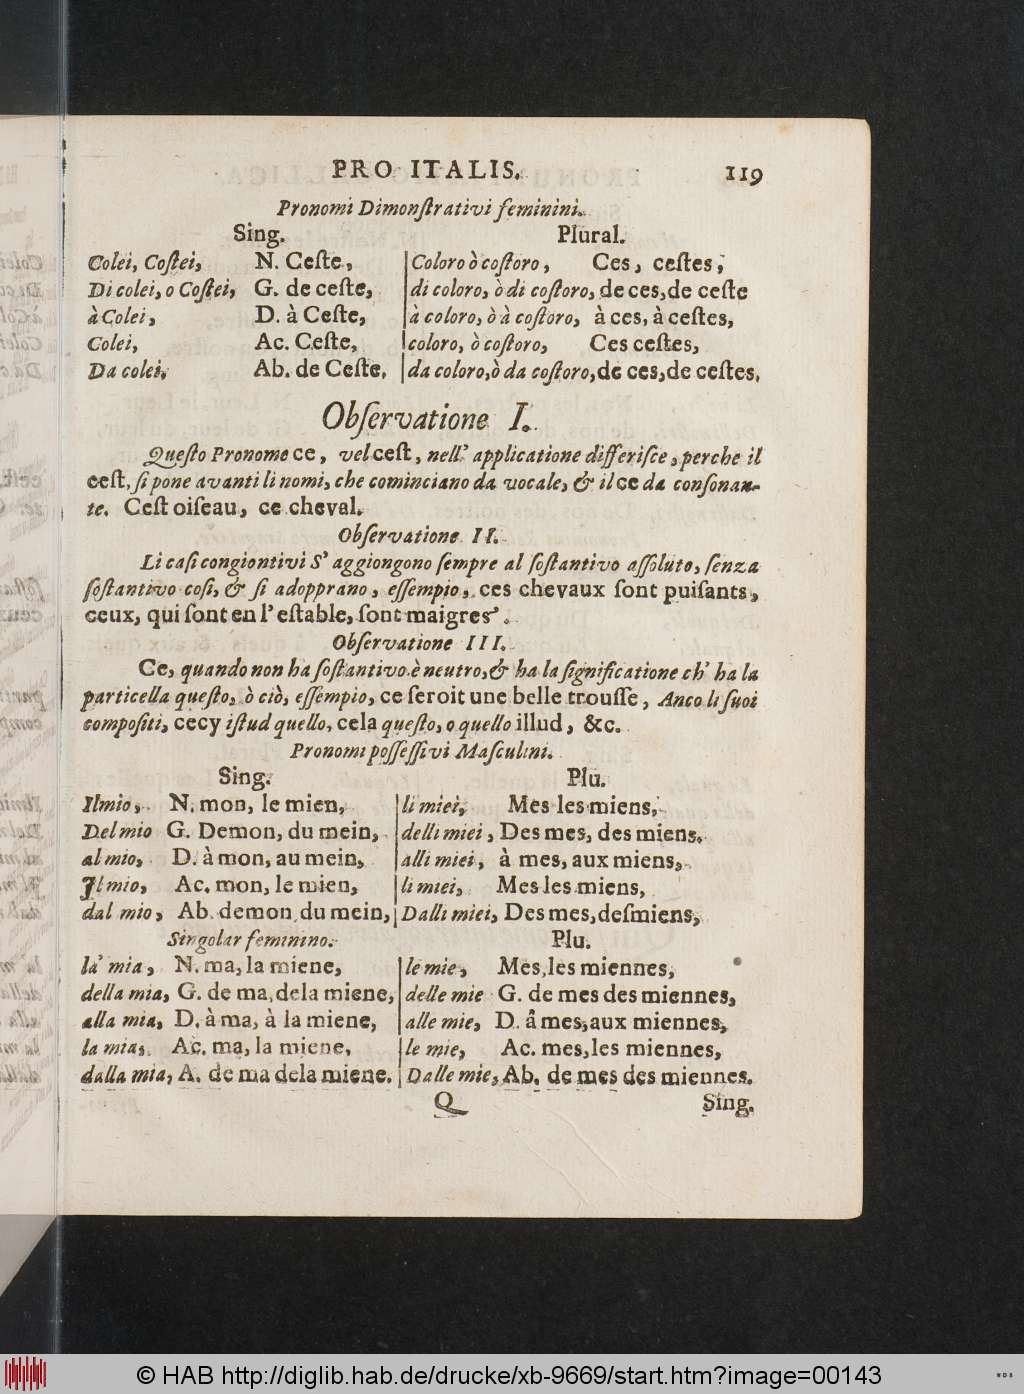 PRO ITALIS. 119
Pronomi Dimonſtrativi feminini.
Sing. Plural.
Colei, Coſtei, N. Ceſte, Coloro ò coſtoro, Ces, ceſtes,
Di colei, o Coſtei, G. de ceſte, di coloro, ò di coſtoro, de ces, de ceſte
à Colei, D. à Ceſte, à coloro, ò à coſtoro, à ces, à ceſtes,
Colei, Ac. Ceſte, coloro, ò coſtoro, Ces ceſtes,
Da colei, Ab. de Ceſte, da coloro, ò da coſtoro, de ces, de ceſtes,
Obſervatione I.
Queſto Pronome ce, vel ceſt, nell' applicatione differiſce, perche il
ceſt, ſi pone avanti li nomi, che cominciano da vocale, & il ce da conſonan-
te. Ceſt oiſeau, ce cheval.
Obſervatione II.
Li caſi congiontivi S' aggiongono ſempre al ſoſtantivo aſſoluto, ſenza
ſoſtantivo coſi, & ſi adopprano, eſſempio, ces chevaux ſont puiſants,
ceux, qui ſont en l' eſtable, ſont maigres.
Obſervatione III.
Ce, quando non ha ſoſtantivo è neutro, & ha la ſignificatione ch' ha la
particella queſto, ò ciò, eſſempio, ce ſeroit une belle trouſſe, Anco li ſuoi
compoſiti, cecy iſtud quello, cela queſto, o quello illud, &c.
Pronomi poſſeſſivi Maſculini.
Sing. Plu.
Il mio, N. mon, le mien, li miei, Mes les miens,
Del mio G. De mon, du mein, delli miei, Des mes, des miens.
al mio, D. à mon, au mein, alli miei, à mes, aux miens,
Il mio, Ac. mon, le mien, li miei, Mes les miens,
dal mio, Ab. demon du mein, Dalli miei, Des mes, deſmiens,
Singolar feminino. Plu.
la mia, N. ma, la miene, le mie, Mes, les miennes,
della mia, G. de ma, dela miene, delle mie G. de mes des miennes,
alla mia, D. à ma, à la miene, alle mie, D. â mes, aux miennes,
la mia, Ac. ma, la miene, le mie, Ac. mes, les miennes,
dalla mia, A. de ma dela miene. Dalle mie, Ab. de mes des miennes.
Q Sing.
© HAB http://diglib.hab.de/drucke/xb-9669/start.htm?image=00143